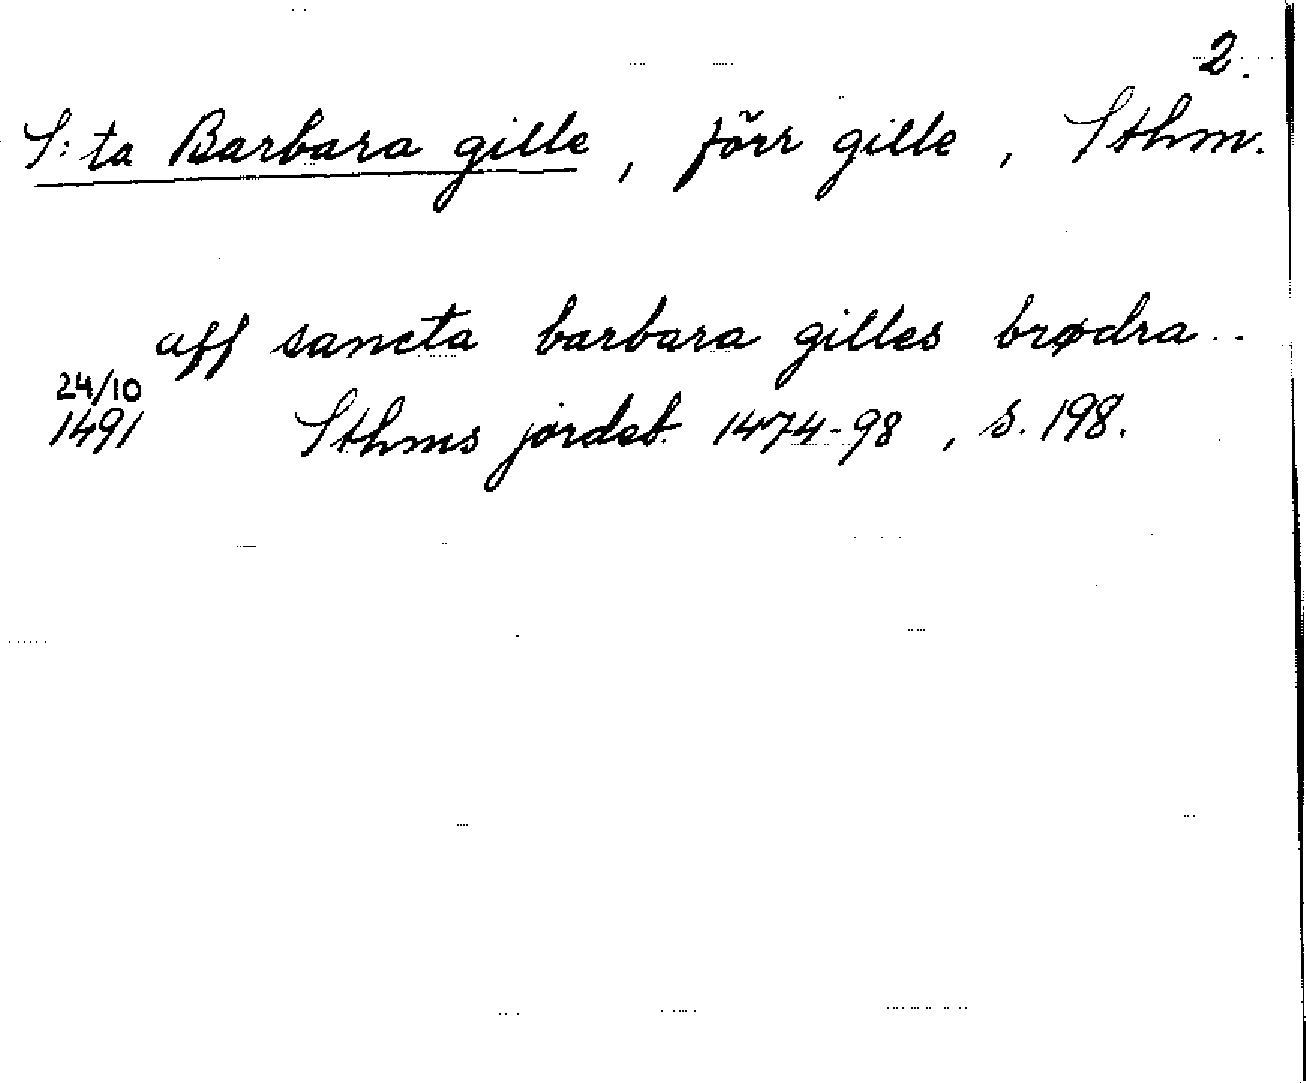 2.
S:ta Barbara gille, förr gille, Sthm.
aff sancta barbara gilles brødra ..
24/10
1491 Sthms jordeb. 1474-98, s. 198.